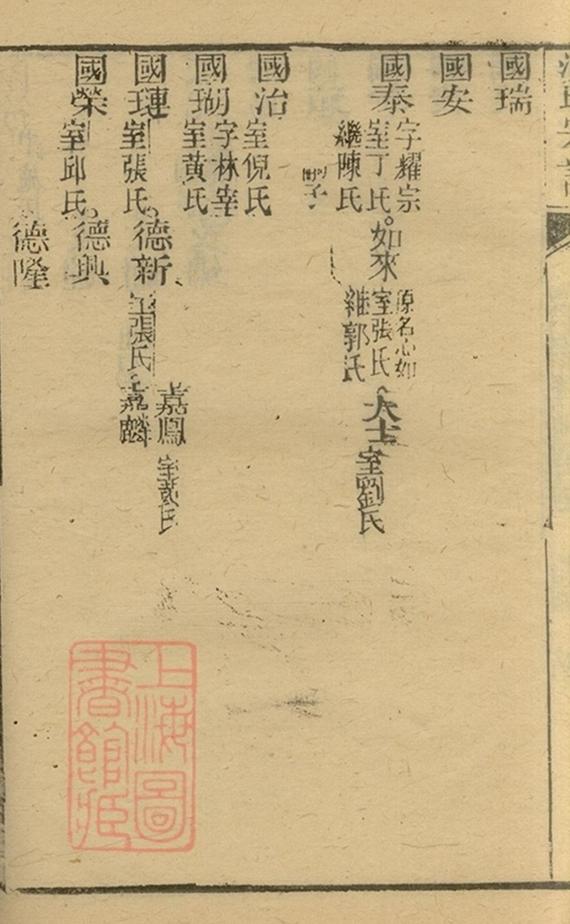 國瑞
國安
國泰
字耀宗
室丁氏
繼陳氏
如來
原名心如
室張氏
繼郭氏
大士
室劉氏
國治
室倪氏
國瑚
字林宰
室黃氏
國璉
室張氏
德新
室張氏
嘉鳳
嘉麟
國榮
室邱氏
德興
德隆
上海圖
書館藏